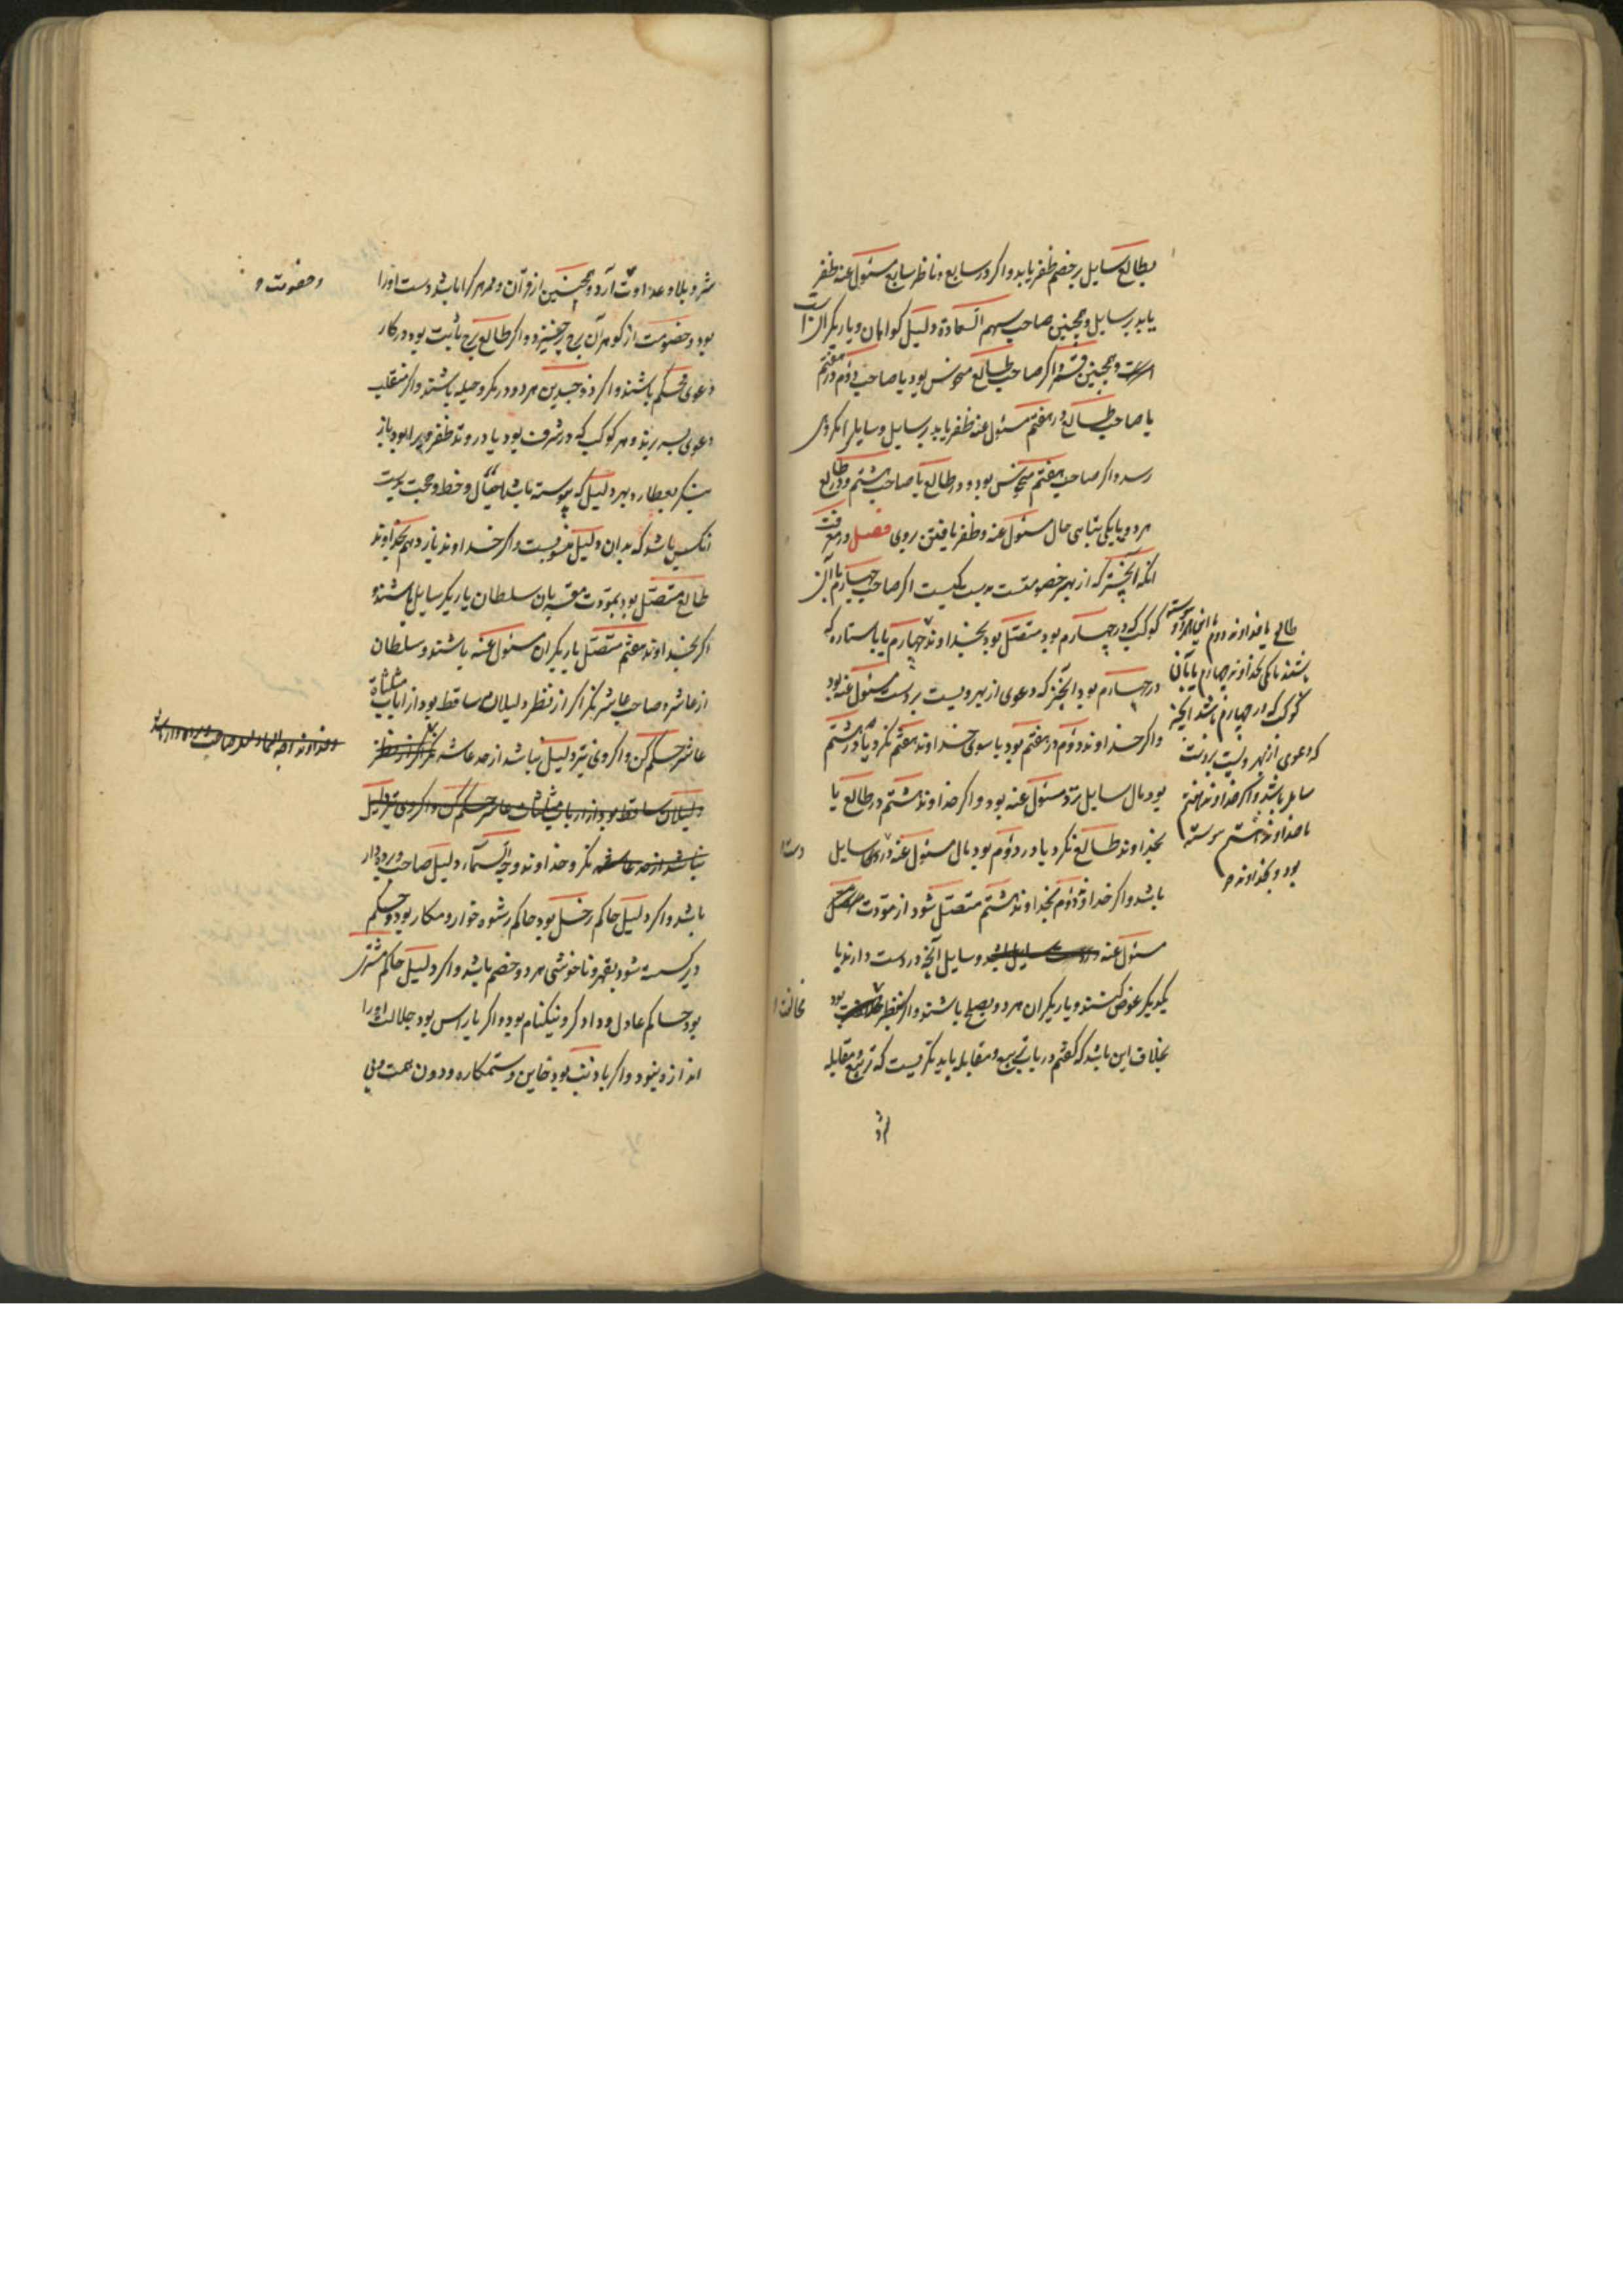 بطالع سایل بر خصم ظفر یابد و اکر در سابع و ناظر سابع مسئول عنه ظفر
یابد بر سایل و همچنین صاحب سهم السعادة دلیل کواهان و یاریکران است
است و همچنین قمر و اکر صاحب طالع منحوس بود یا صاحب دوم در هفتم
یا صاحب طالع در هفتم مسئول عنه ظفر یابد بر سایل و سایل را مکروهی
رسد و اکر صاحب هفتم منحوس بود و در طالع یا صاحب هشتم در طالع
هر دو یا یکی تباهی حال مسئول عنه و ظفر یافتن بروی فصل در معرفت
انکه آنچیز که از بهر خصومتست بدست کیست اکر صاحب چهارم با آن
کوکب که در چهارم بود متصل بود بخداوند چهارم یا با ستاره که
در چهارم بود آنچیز که دعوی از بهر ویست بردست مسئول عنه بود
و اکر خداوند دوم در هفتم بود یا سوی خداوند هفتم نکرد یا در هشتم
بود مال سایل نزد مسئول عنه بود و اکر خداوند هشتم در طالع یا
بخداوند طالع نکرد یا در دوم بود مال مسئول عنه در دست سایل
باشد و اکر خداوند دوم بخداوند هشتم متصل شود از مودت
مسئول عنه و سایل آنچه در دست دارند با
یکدیکر عوض کنند و یاریکران هر دو بصلح باشند و اکر بنظر مخالفت بود
بخلاف این باشد که کفتم در باب تربیع و مقابله باید نکریست که تربیع و مقابله
شر
طالع یا خداوند دوم با این هر دو پیوسته
باشند یا یکی بخداوند چهارم یا بآن
کوکب که در چهارم باشد آنچیز
که دعوی از بهر ویست بر دست
سایل باشد و اکر خداوند هفتم
یا خداوند هشتم پیوسته
بود بخداوند
دست
مخالفت
شر و بلا و عداوت آرد و همچنین از قرآن و قمر هر کرا باشد دست او را
بود و خصومت از کوهر آن برج برخیزد و اکر طالع برج ثابت بود در کار
دعوی محکم باشند و اکر ذو جسدین هر دو در مکر و حیله باشند و اکر منقلب
دعوی بسر برند و هر کوکب که در شرف بود یا در وتد ظفر ویرا بود باز
بنکر بعطارد بهر دلیل که پیوسته باشد احتیال و خط و حجت بدست
انکس باشد که بدان دلیل منسوبست و اکر خداوند یازدهم بخداوند
طالع متصل بود بمودت مقربان سلطان یاریکر سایل باشند و
اکر بخداوند هفتم متصل یاریکران مسئول عنه باشند و سلطان
از عاشر و صاحب عاشر نکر اکر از نظر دلیلان ساقط بود از ارباب مثلثات
عاشر حکم کن و اکر وی نیز دلیل نباشد از حد عاشر نکر اکر از نظر
دلیلان ساقط بود از ارباب مثلثات عاشر حکم کن و اکر وی نیز دلیل
نباشد از حد عاشر نکر و خداوند وجه السماء دلیل صاحب دیوان
باشد و اکر دلیل حاکم زحل بود حاکم رشوه خوار و مکار بود و حکم
دیر کسسته شود بقهر و ناخوشی هر دو خصم باشد و اکر دلیل حاکم مشتری
بود حاکم عادل و دادکر و نیکنام بود و اکر با راس بود جلالت او را
اندازه نبود و اکر با ذنب بود خاین و ستمکاره و دون همت و بی
و خصومت و